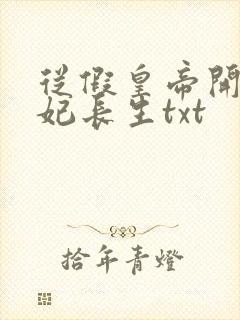 從假皇帝開
妃長生txt
拾年青燈